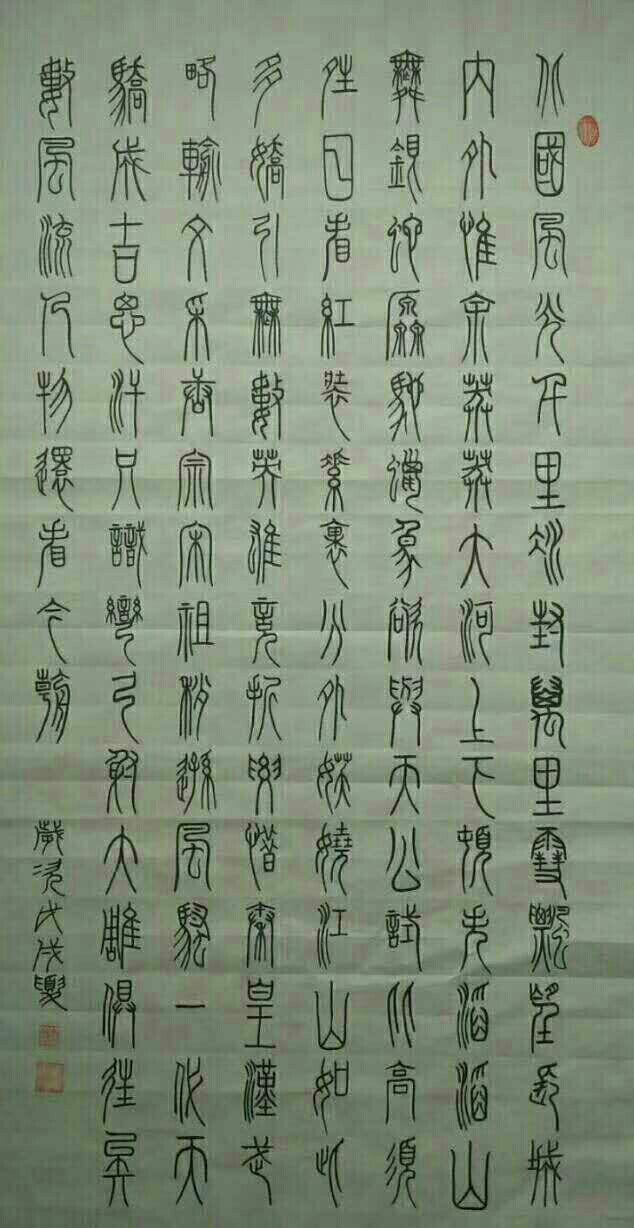 北國風光千里冰封萬里雪飄望長城
内外惟余莽莽大河上下頓失滔滔山
舞銀蛇原馳蠟象欲與天公試比高須
晴日看紅裝素裹分外妖嬈江山如此
多嬌引無數英雄競折腰惜秦皇漢武
略輸文采唐宗宋祖稍遜風騷一代天
驕成吉思汗只識彎弓射大雕俱往矣
數風流人物還看今朝
歲次戊戌夏